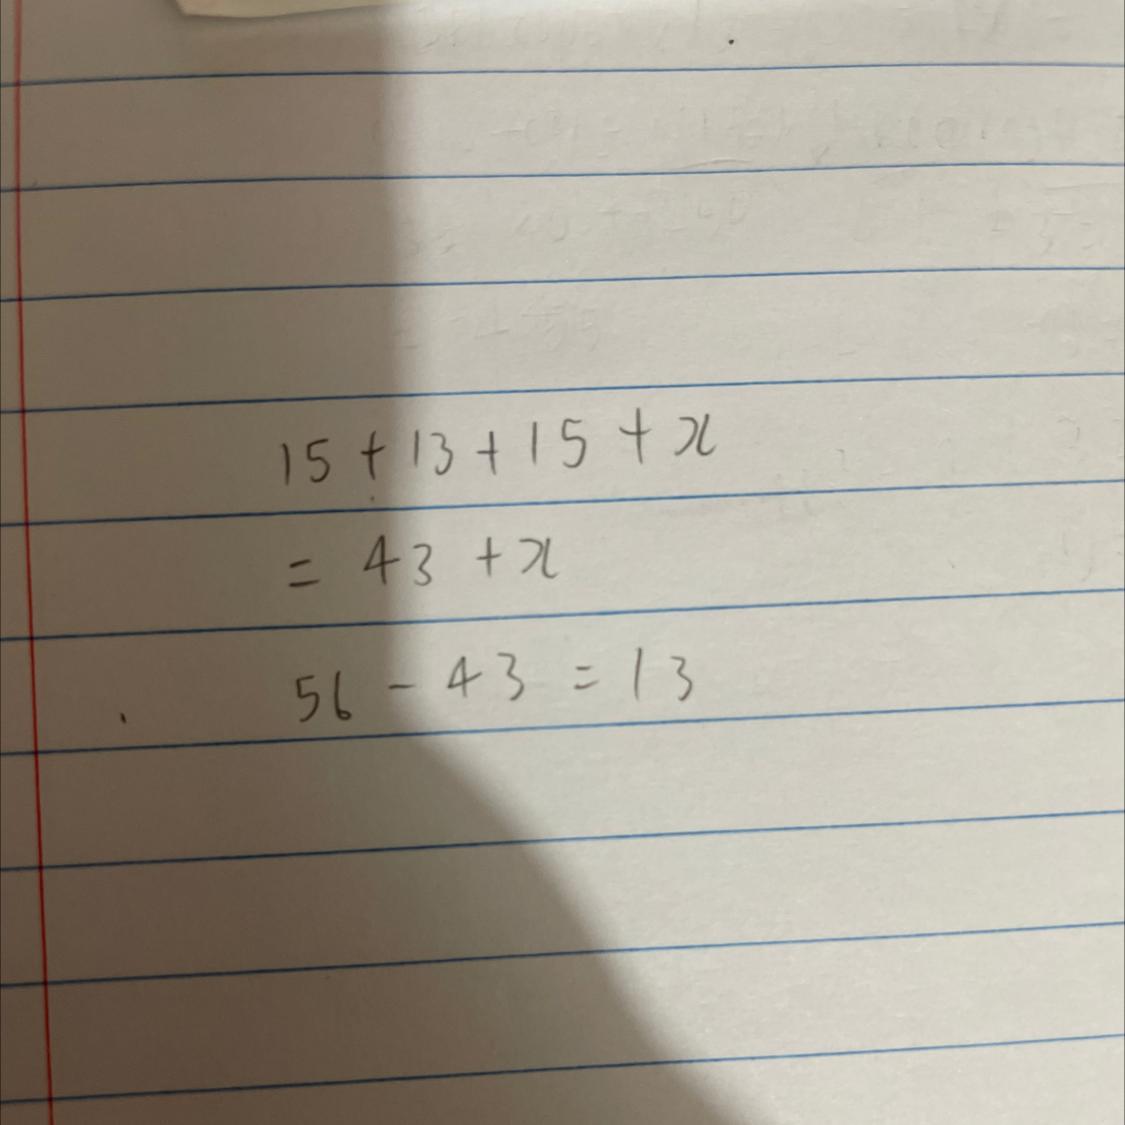 15 + 13 + 15 + x
= 43 + x
56 - 43 = 13